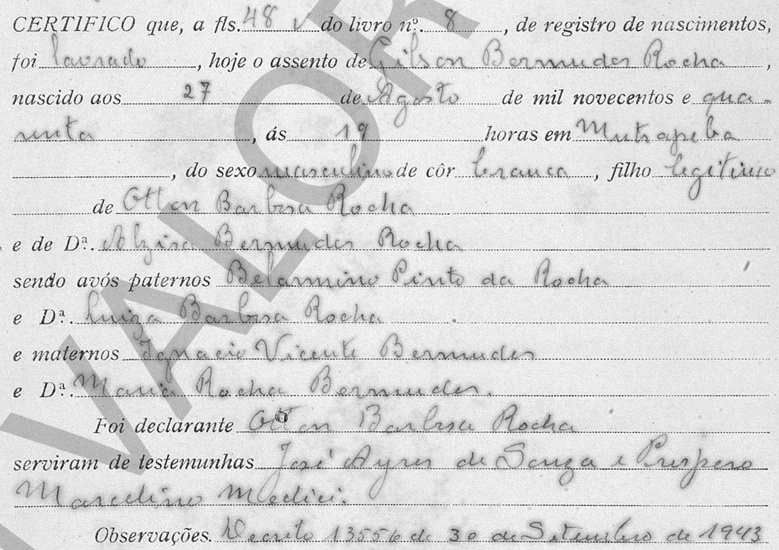 CERTIFICO que, a fls. 48 v do livro nº. 8, de registro de nascimentos,
foi lavrado, hoje o assento de Gilson Bermudes Rocha,
nascido aos 27 de Agosto de mil novecentos e qua-
renta, ás 19 horas em
, do sexo masculino de côr branca, filho legitimo
de Otton Barbosa Rocha
e de Dª. Alzira Bermudes Rocha
sendo avós paternos Belarmino Pinto da Rocha
e Dª. Luiza Barbosa Rocha
e maternos Ignacio Vicente Bermudes
e Dª. Maria Rocha Bermudes.
Foi declarante Otton Barbosa Rocha
serviram de testemunhas José Ayres de Souza e Prospero
Marcelino Medici.
Observações. Decreto 13556 de 30 de Setembro de 1943
VALOR